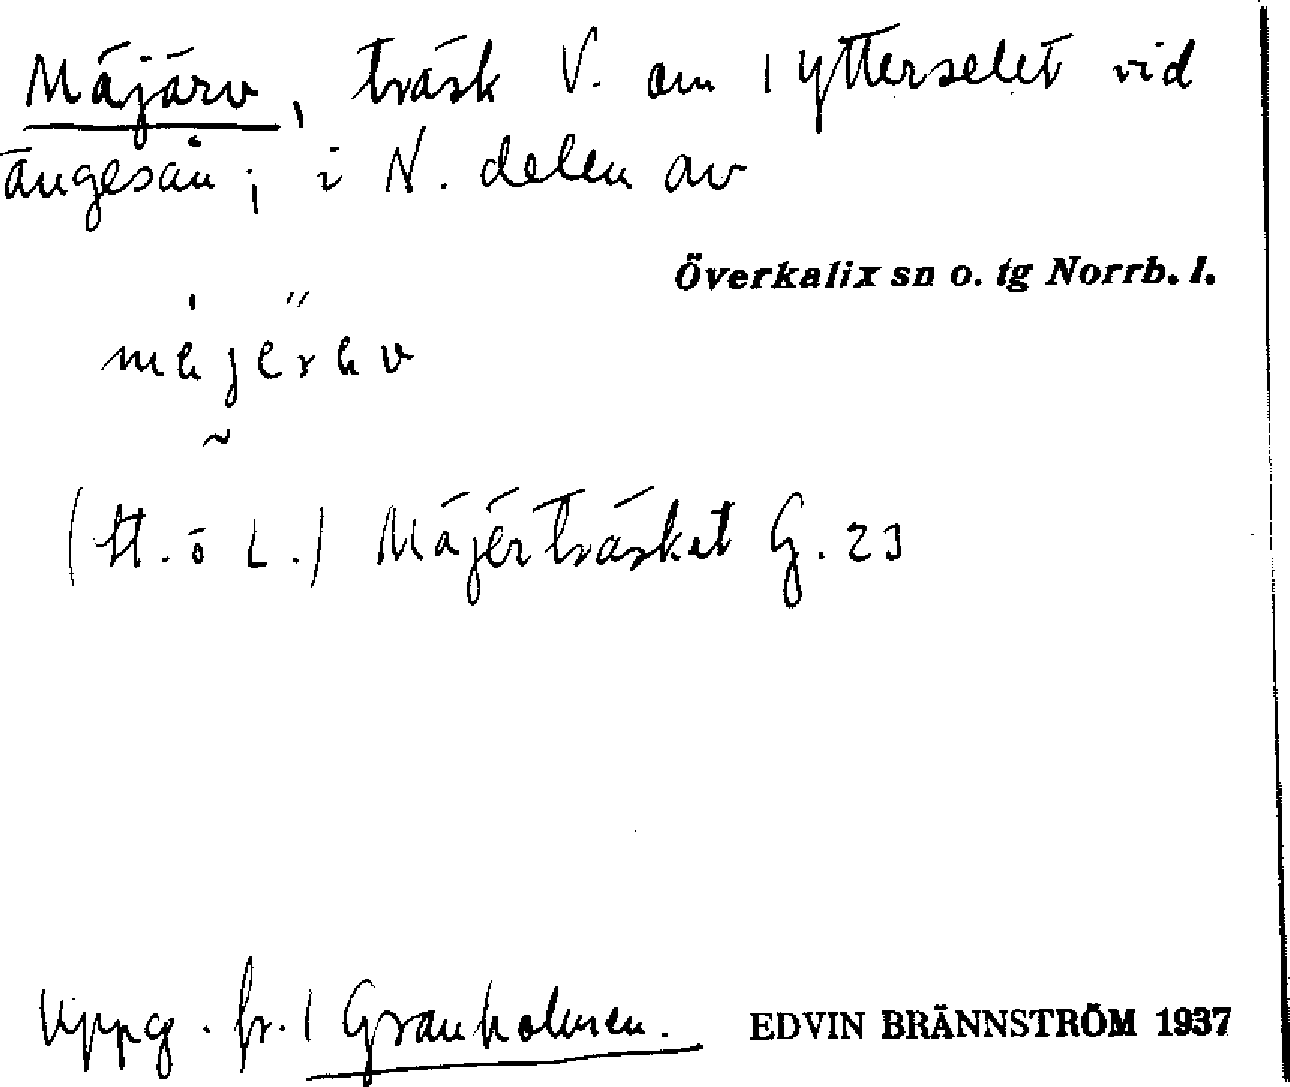 Mäjärv, träsk V. om | ytterselet vid
ängesån; i N. delen av
Överkalix sn o. tg Norrb. l.
(tt. ö L.) Mäjérträsket G. 23
Uppg. fr. | Granholmen.
EDVIN BRÄNNSTRÖM 1937